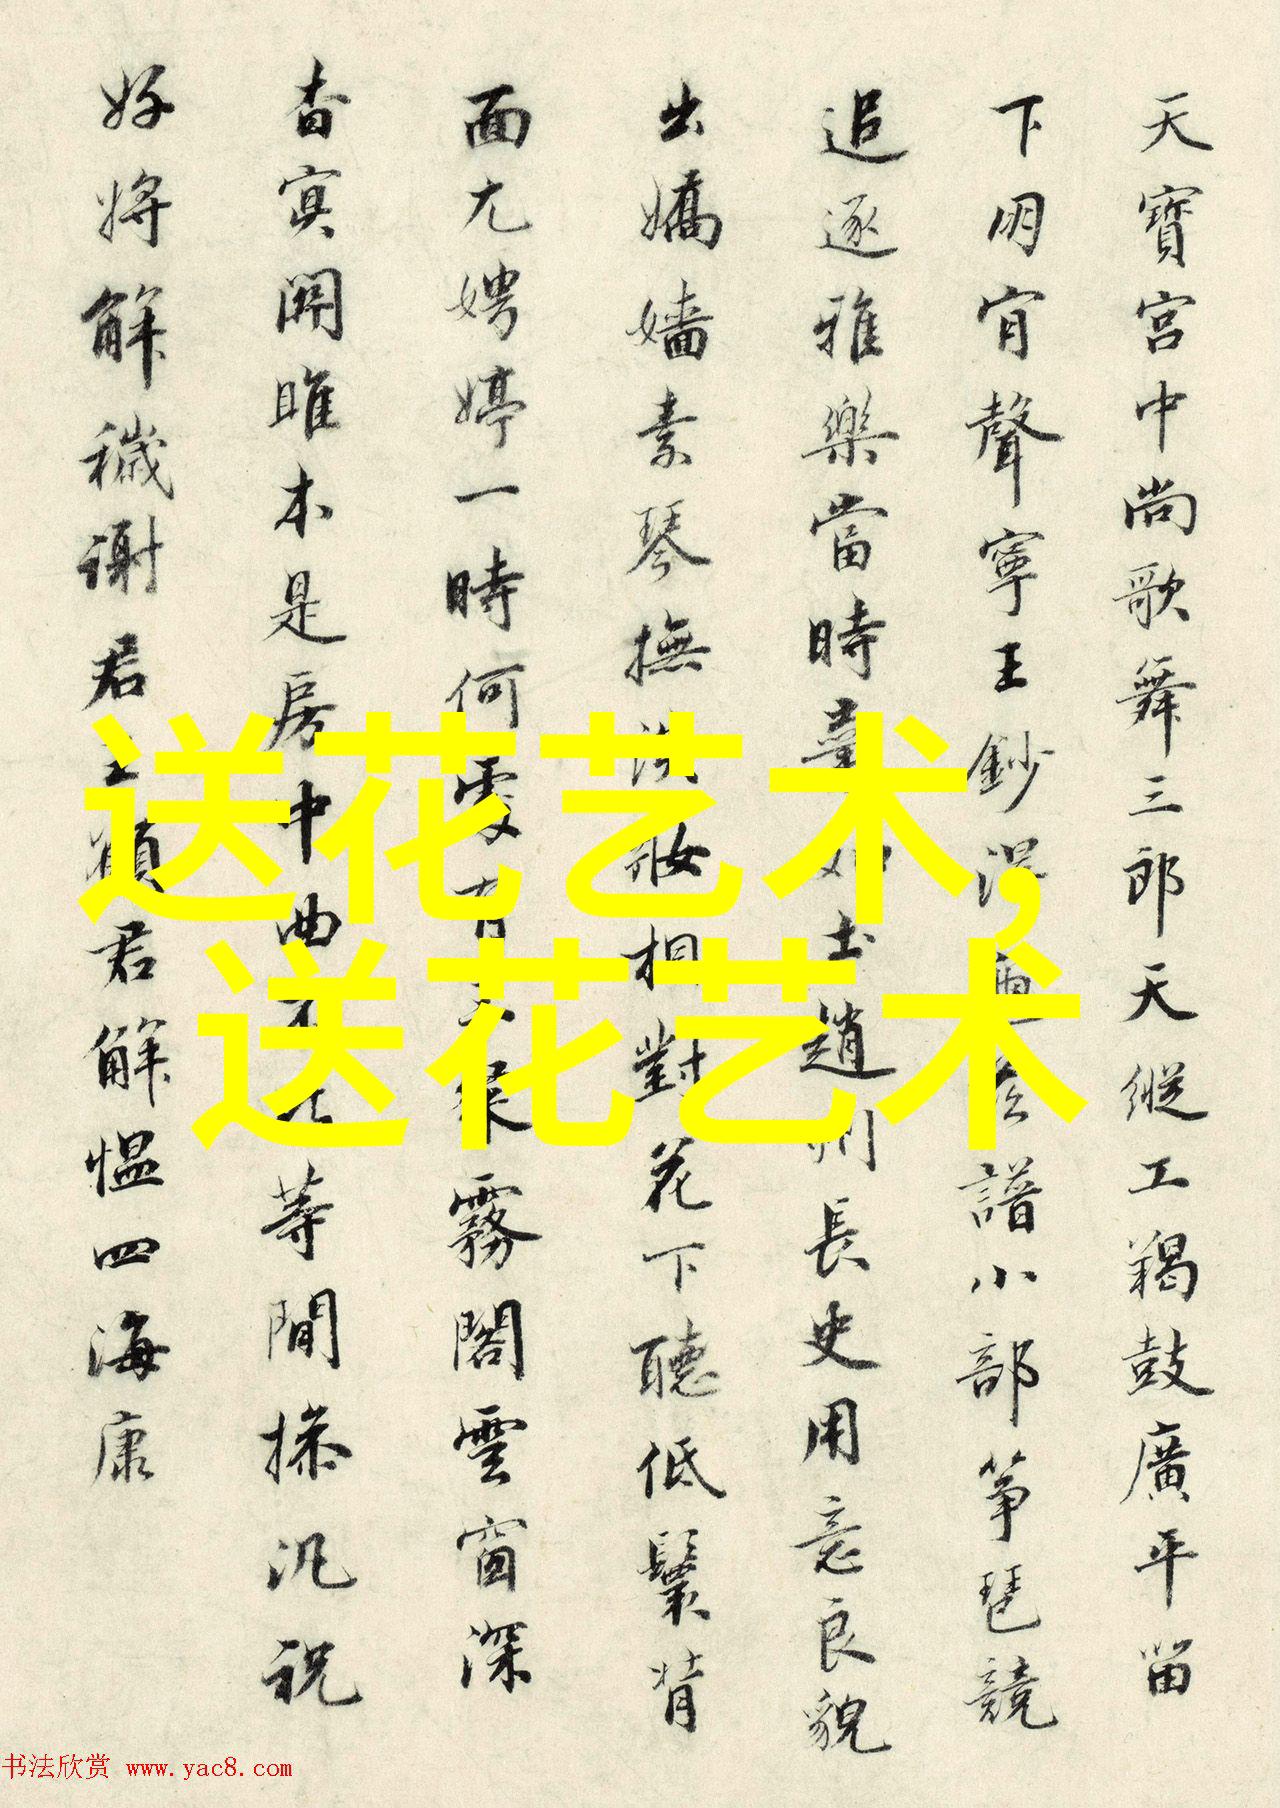 天寶宮中尚歌舞三郎天縱工羯鼓廣平笛
下明宵聲寧王鈔譜小部箏琶競
追逐雅樂當時趙州長史用意良貌
出嬌嬙素琴撫洗妝相對花下聽低鬟背
面尤娉婷一時何處有霧閣雲窗深
杳冥關雎本是房中曲不等閒操汎祝
好將解穢謝君王願君解慍四海康
送花艺术,
送花艺术
书法欣赏 www.yac8.com